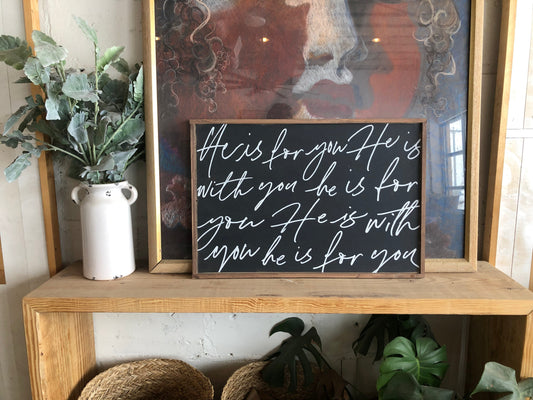 He is for you He is
with you he is for
you He is with
you he is for you